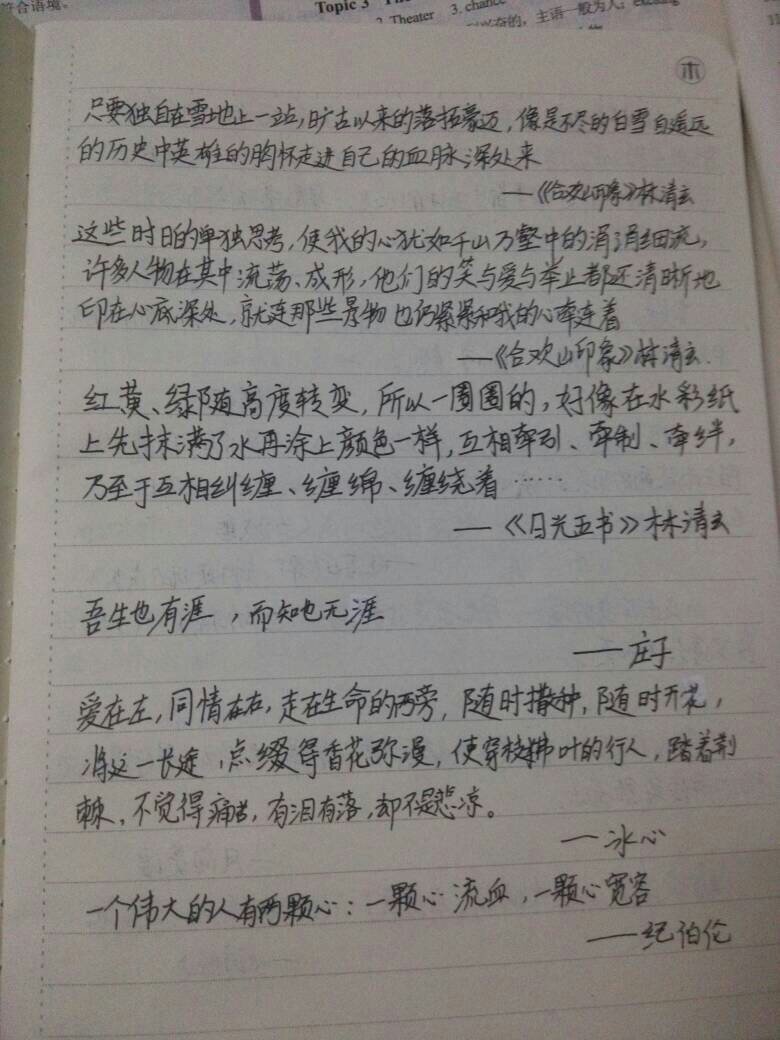 符合语境。
Topic 3
2. Theater 3. chance
兴奋的，主语一般为人；exciting
木
只要独自在雪地上一站，旷古以来的落拓豪迈，像是不尽的白雪自遥远
的历史中英雄的胸怀走进自己的血脉深处来
——《合欢山印象》林清玄
这些时日的单独思考，使我的心犹如千山万壑中的涓涓细流，
许多人物在其中流荡、成形，他们的笑与爱与举止都还清晰地
印在心底深处，就连那些景物也仍紧紧和我的心牵连着
——《合欢山印象》林清玄.
红、黄、绿随高度转变，所以一圈圈的，好像在水彩纸
上先抹满了水再涂上颜色一样，互相牵引、牵制、牵绊，
乃至于互相纠缠、缠绵、缠绕着……
——《月光五书》林清玄
吾生也有涯，而知也无涯
——庄子
爱在左，同情在右，走在生命的两旁，随时撒种，随时开花，
将这一长途，点缀得香花弥漫，使穿枝拂叶的行人，踏着荆
棘，不觉得痛苦，有泪有落，却不是悲凉。
——冰心
一个伟大的人有两颗心：一颗心流血，一颗心宽容
——纪伯伦